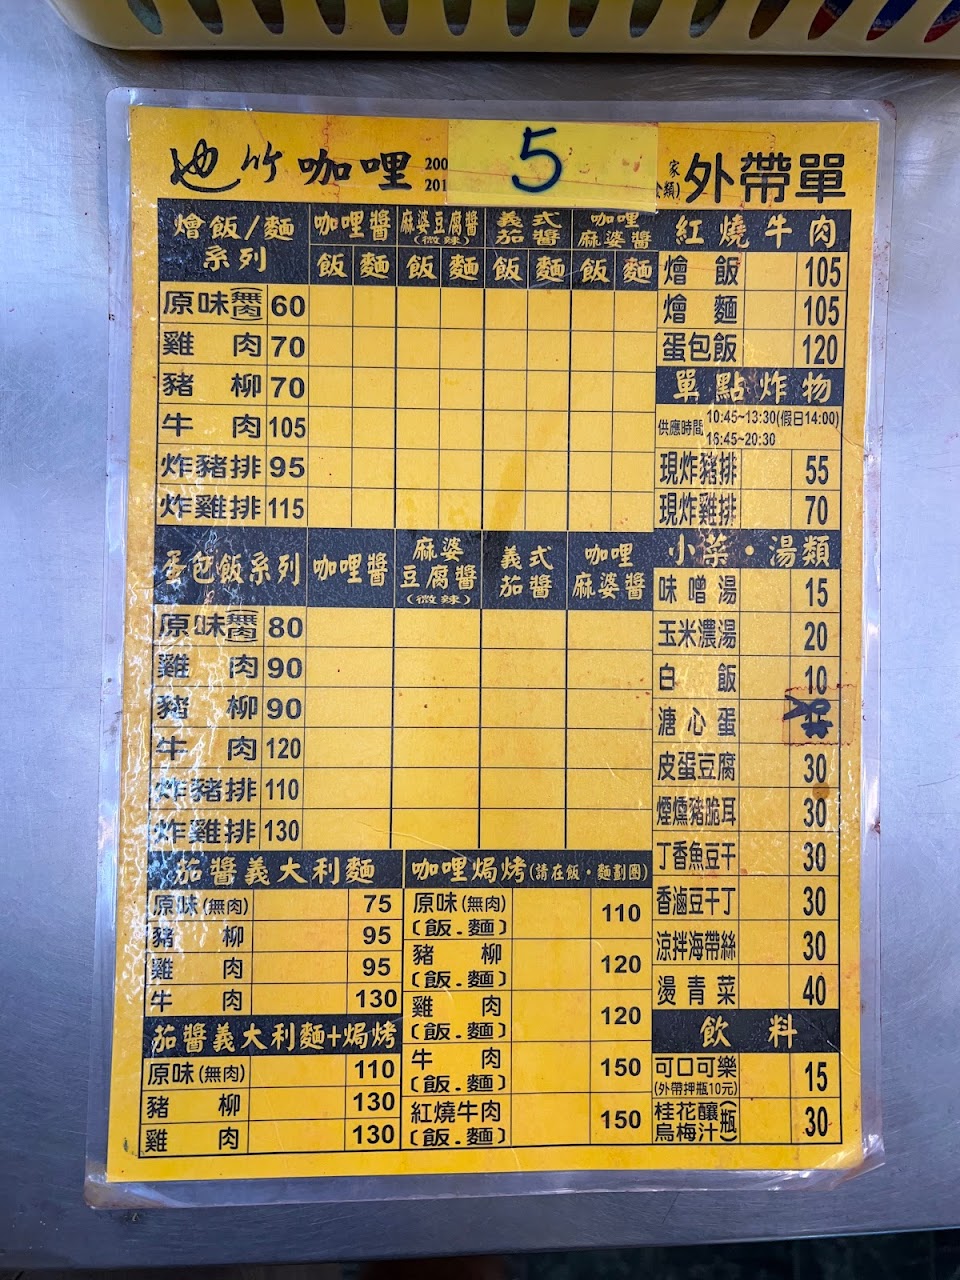 池竹咖哩
200
201
5
家
外帶單
燴飯/麵
系列
咖哩醬 麻婆豆腐醬(微辣) 義式茄醬 咖哩麻婆醬
飯 麵 飯 麵 飯 麵 飯 麵
原味(無肉) 60
雞肉 70
豬柳 70
牛肉 105
炸豬排 95
炸雞排 115
蛋包飯系列 咖哩醬 麻婆豆腐醬(微辣) 義式茄醬 咖哩麻婆醬
原味(無肉) 80
雞肉 90
豬柳 90
牛肉 120
炸豬排 110
炸雞排 130
茄醬義大利麵
原味(無肉) 75
豬柳 95
雞肉 95
牛肉 130
茄醬義大利麵+焗烤
原味(無肉) 110
豬柳 130
雞肉 130
咖哩焗烤(請在飯·麵劃圈)
原味(無肉)
(飯.麵) 110
豬柳
(飯.麵) 120
雞肉
(飯.麵) 120
牛肉
(飯.麵) 150
紅燒牛肉
(飯.麵) 150
紅燒牛肉
燴飯 105
燴麵 105
蛋包飯 120
單點炸物
供應時間 10:45~13:30(假日14:00)
16:45~20:30
現炸豬排 55
現炸雞排 70
小菜·湯類
味噌湯 15
玉米濃湯 20
白飯 10
溏心蛋
皮蛋豆腐 30
煙燻豬脆耳 30
丁香魚豆干 30
香滷豆干丁 30
涼拌海帶絲 30
燙青菜 40
飲料
可口可樂 15
(外帶押瓶10元)
桂花釀
烏梅汁(瓶) 30